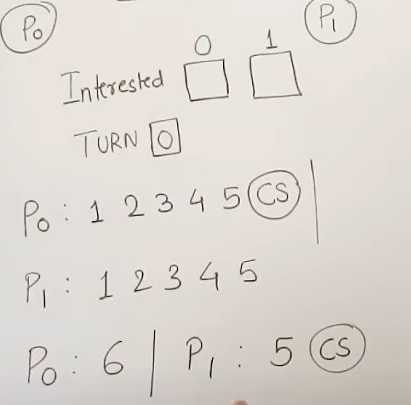 P0 P1
0 1
Interested
TURN 0
P0 : 1 2 3 4 5 CS |
P1 : 1 2 3 4 5
P0 : 6 | P1 : 5 CS